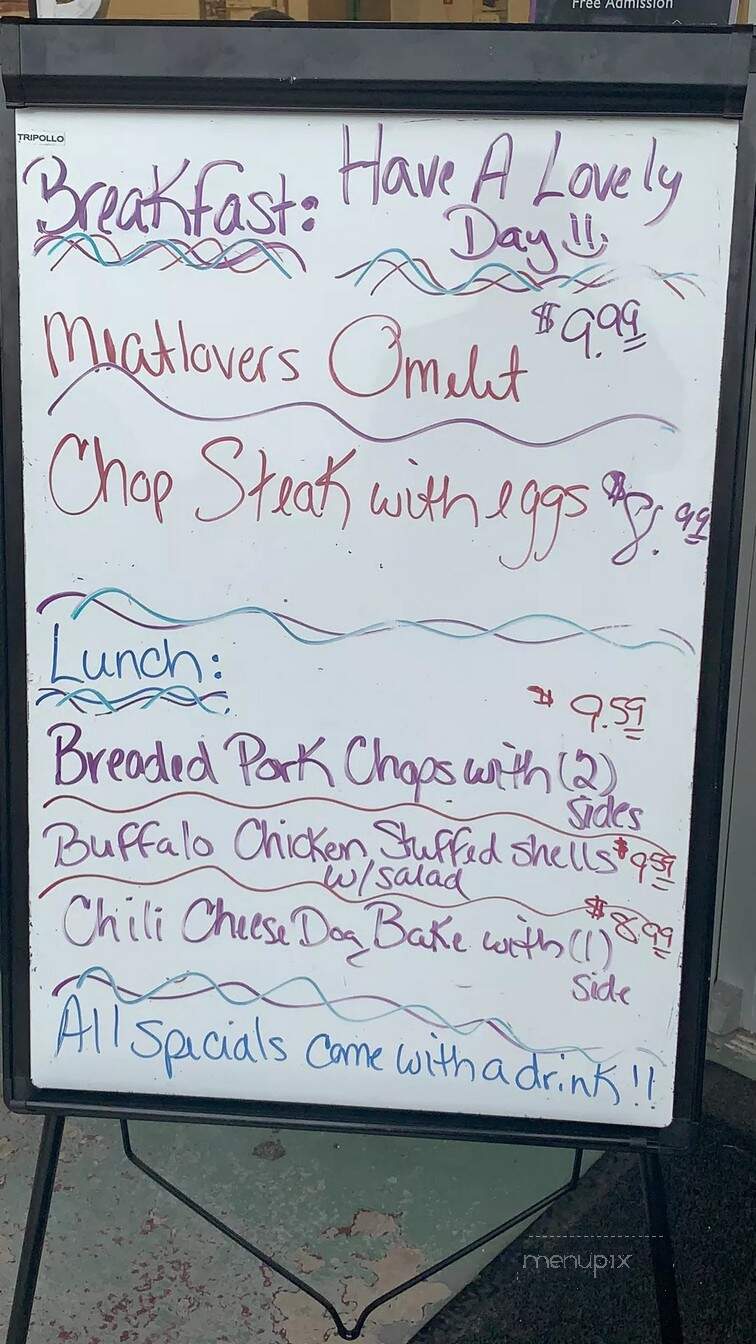 Free Admission
TRIPOLLO
Breakfast:
Have A Lovely
Day!!
$9.99
Meatlovers Omelet
Chop Steak with eggs $8.99
Lunch:
$9.59
Breaded Pork Chops with (2)
Sides
Buffalo Chicken Stuffed shells $9.59
w/salad
$8.99
Chili Cheese Dog Bake with (1)
Side
All Specials come with a drink!!
menupix